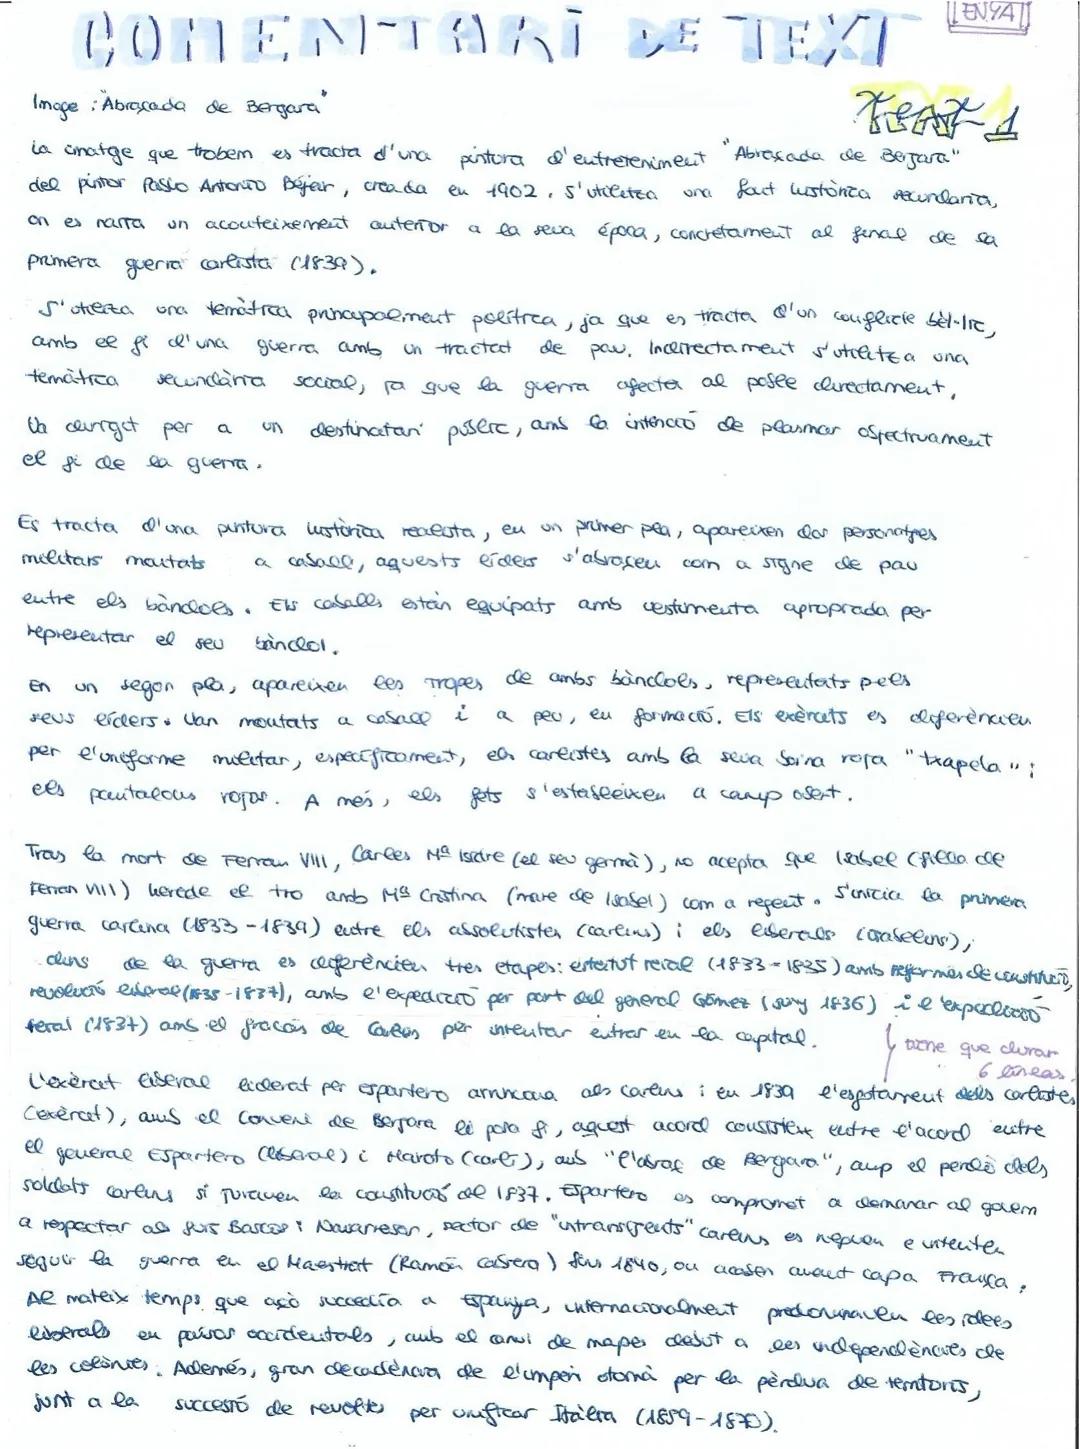 COMENTARI DE TEXT
ENYA
Image : "Abraçada de Bergara"
TEXT 1
La imatge que trobem es tracta d'una pintura d'entreteniment "Abraçada de Bergara"
del pintor Pablo Antonio Béjar, creada en 1902. S'utilitza una font històrica secundaria,
on es narra un aconteixement anterior a la seva época, concretament al final de la
primera guerra carlista (1839).
S'utilitza una temàtica principalment política, ja que es tracta d'un conflicte bèl·lic,
amb el fi d'una guerra amb un tractat de pau. Indirectament s'utilitza una
temàtica secundària social, ja que la guerra afecta al poble directament,
Va dirigit per a un destinatari públic, amb la intenció de plasmar objectivament
el fi de la guerra.
Es tracta d'una pintura històrica realista, en un primer pla, apareixen dos personatges
militars montats a caball, aquests líders s'abracen com a signe de pau
entre els bàndols. Els caballs están equipats amb vestimenta apropiada per
representar el seu bàndol.
En un segon pla, apareixen les tropes de ambs bàndols, representats pels
seus líders. Van montats a caball i a peu, en formació. Els exèrcits es diferèncien
per l'uniforme militar, específicament, els carlistes amb la seva boina roja "txapela" i
els pantalons rojos. A més, els fets s'estableixen a camp obert.
Tras la mort de Ferran VIII, Carles Mª Isidre (el seu germà), no acepta que Isabel (filla de
Ferran VIII) herede el tro amb Mª Cristina (mare de Isabel) com a regent. S'inicia la primera
guerra carlina (1833-1839) entre els absolutistes (carlins) i els liberals (isabelins),
dins de la guerra es diferèncien tres etapes: estatut reial (1833-1835) amb reformes de constitució,
revolució liberal (1835-1837), amb l'expedició per part del general Gómez (juny 1836) i l'expedició
reral (1837) amb el fracàs de Carles per intentar entrar en la capital.
tiene que durar
6 líneas.
L'exèrcit liberal liderat per espartero arrincona als carlins i en 1839 l'esgotament dels carlistes
(exèrcit), amb el Conveni de Bergara li posa fi, aquest acord consisteix entre l'acord entre
el general Espartero (liberal) i Maroto (carlí), amb "l'abraç de Bergara", amp el perdó dels
soldats carlins si juraven la constitució del 1837. Espartero es compromet a demanar al govern
a respectar als furs Bascos i Navarresos, sector de "intransigents" carlins es neguen e intenten
seguir la guerra en el Maestrat (Ramón Cabrera) fins 1840, on acaben anant capa França.
Al mateix temps que açò succedia a Espanya, internacionalment predominaven les idees
liberals en països occidentals, amb el canvi de mapes debut a les independències de
les colònies. Además, gran decadència de l'imperi otomà per la pèrdua de territoris,
junt a la successió de revoltes per unificar Itàlia (1859-1870).